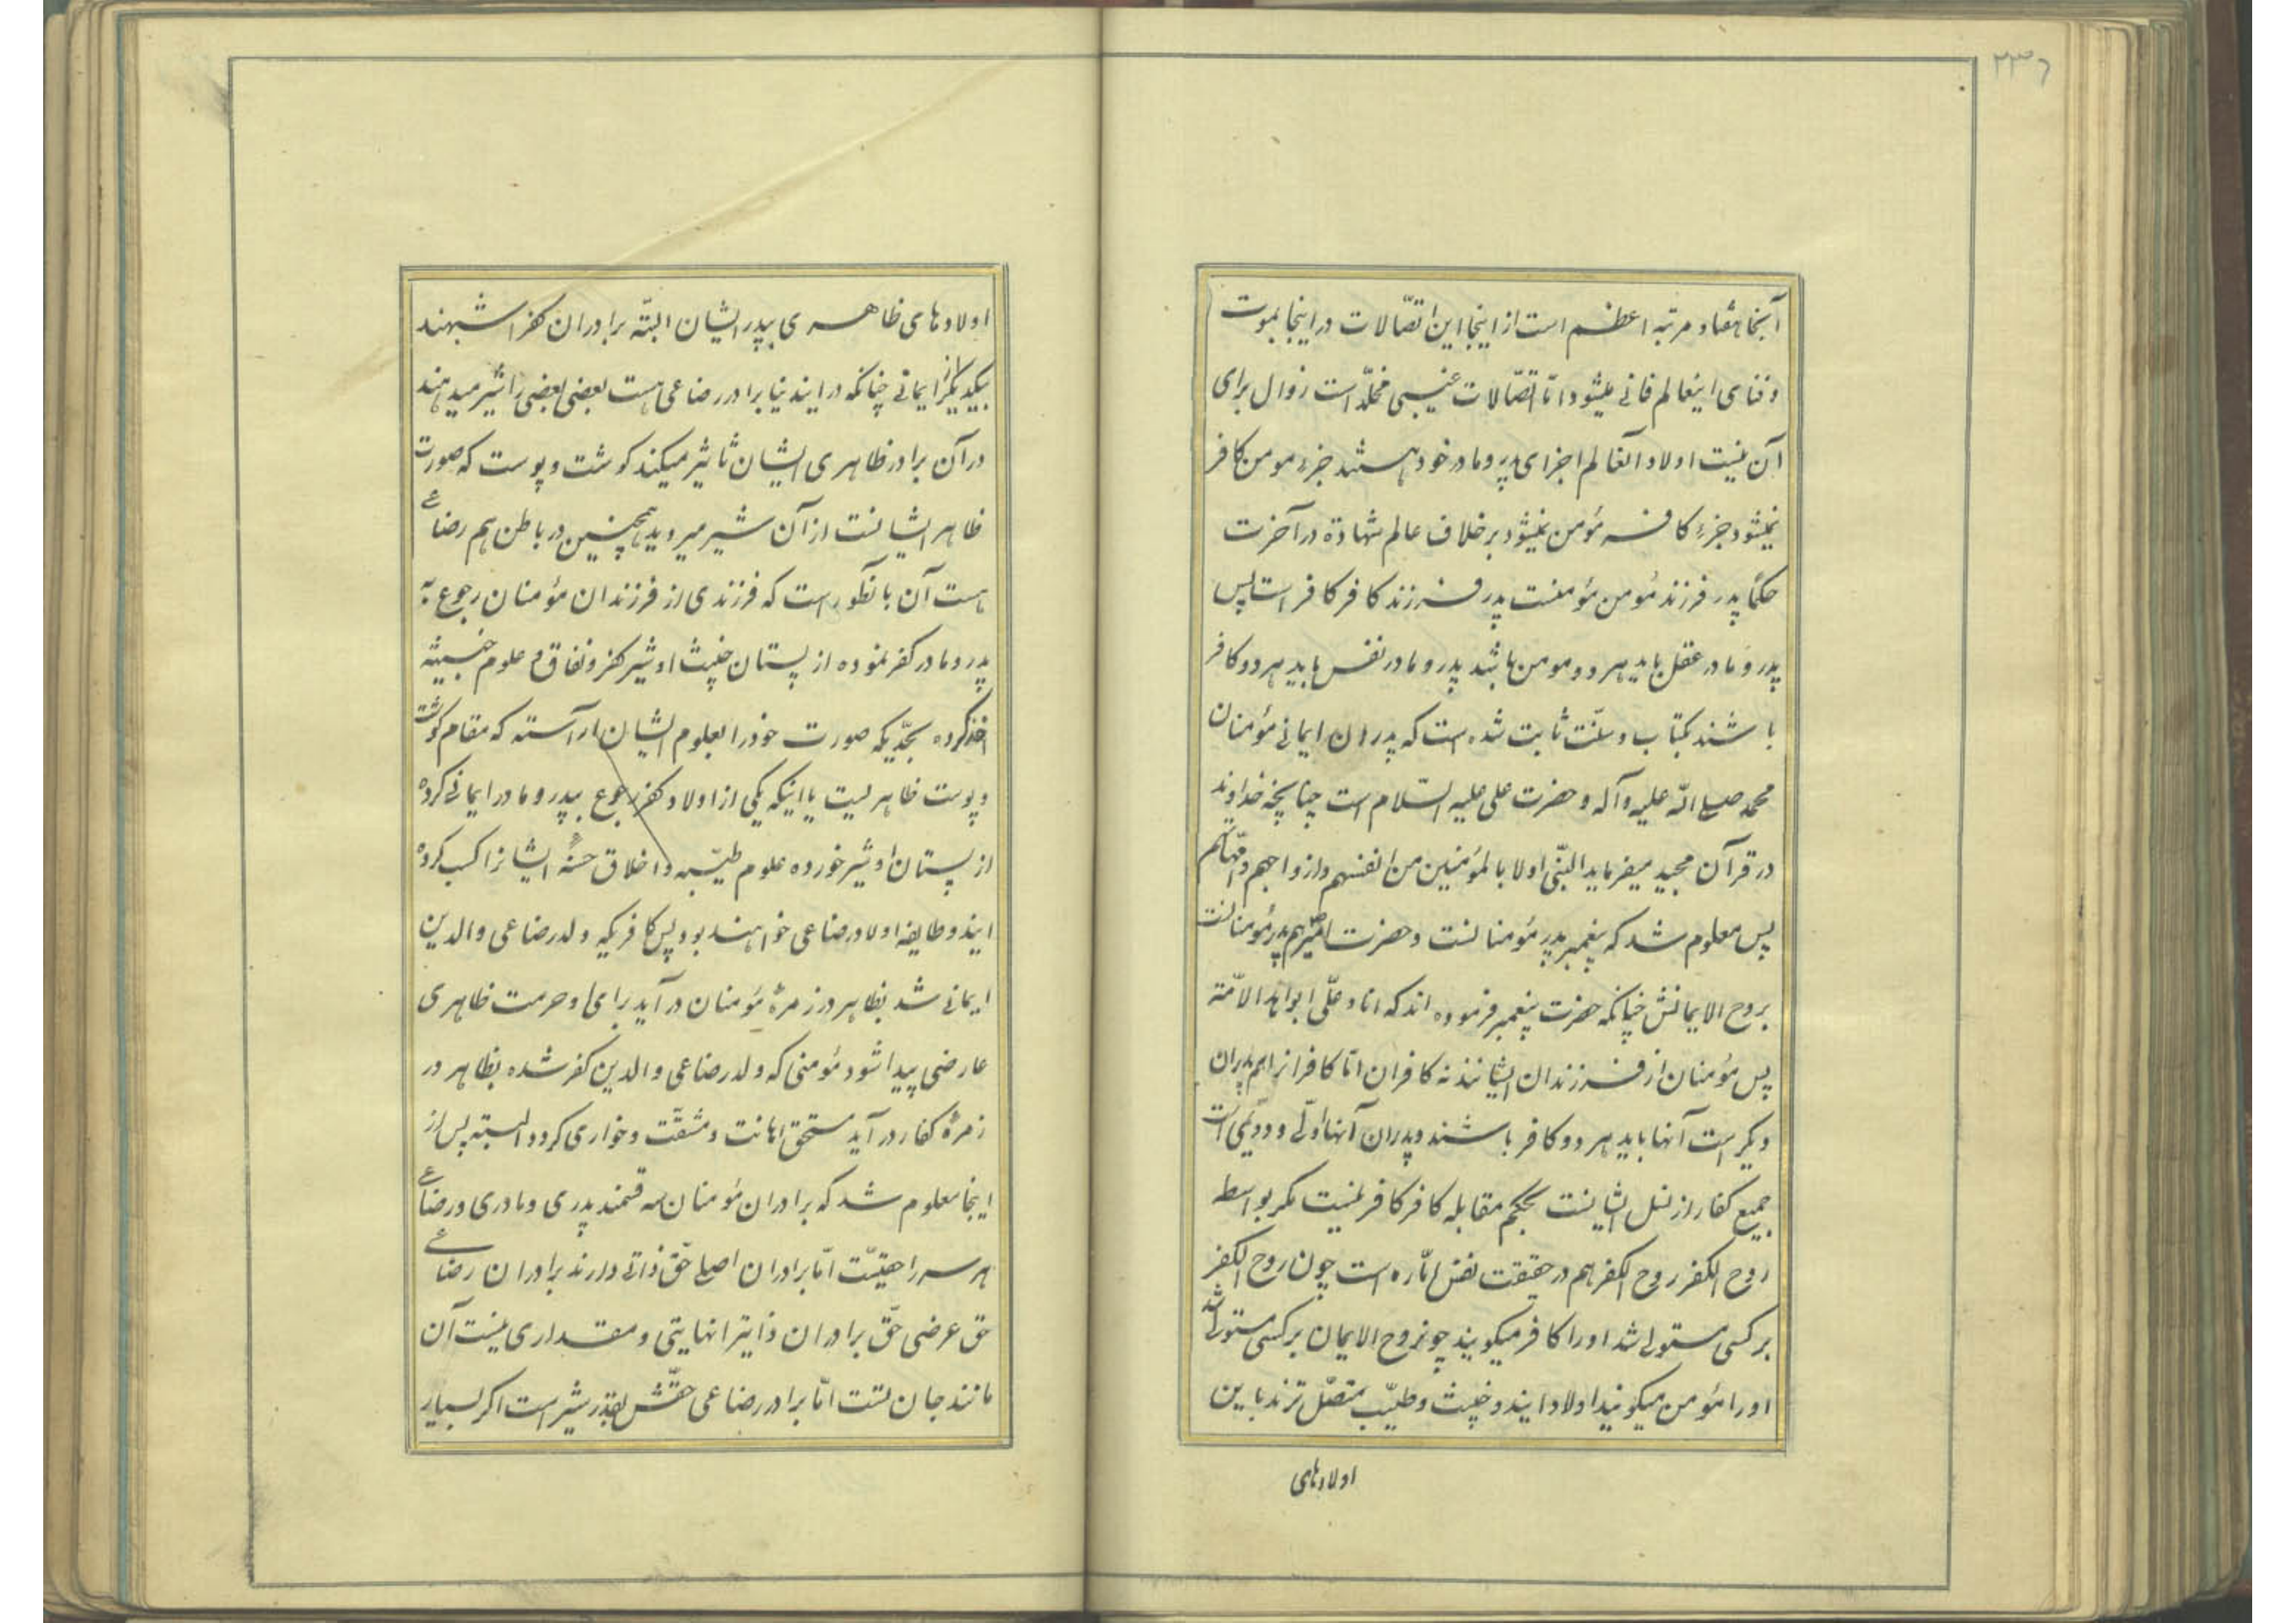 ۲۳۶
آنجا هفتاد مرتبه اعظم است از اینجا این اتصّالات در اینجا بموت
و فنای اینعالم فانی میشود امّا اتصّالات غیبی مخلّد است زوال برای
آن نیست اولاد آنعالم اجزای پدر و مادر خود هستند جزء مومن کافر
نمیشود جزء کافر مؤمن نمیشود برخلاف عالم شهادة در آخرت
حکمًا پدر فرزند مؤمن مؤمنست پدر فرزند کافر کافر است پس
پدر و مادر عقل باید هر دو مومن باشد پدر و مادر نفس باید هر دو کافر
باشند بکتاب و سنّت ثابت شده است که پدران ایمانی مؤمنان
محمد صلی الله علیه و آله و حضرت علی علیه السّلام است چنانچه خداوند
در قرآن مجید میفرماید النّبی اولا بالمؤمنین من انفسهم و ازواجهم و امّهاتهم
پس معلوم شد که پیغمبر پدر مؤمنانست و حضرت امیر هم پدر مؤمنانست
بروح الایمانش چنانکه حضرت پیغمبر فرموده اند که انا و علّی ابوا هذه الامّة
پس مؤمنان از فرزندان ایشانند نه کافران امّا کافرانرا هم پدران
دیکر است آنها باید هر دو کافر باشند و پدران آنها اوّلی و دوّیمی است
جمیع کفار از نسل ایشانست بحکم مقابله کافر کافر نیست مکر بواسطه
روح الکفر روح الکفر هم در حقیقت نفس امّاره است چون روح الکفر
بر کسی مستولی شد اورا کافر میکویند چون روح الایمان بر کسی مستولی شد
اورا مؤمن میکویند اولاد ایندو خبیث و طیّب متصّل ترند باین
اولادهای
اولادهای ظاهری بپدر ایشان البتّه برادران کفر اشبهند
بیکدیکر از ایمانی چنانکه در ایندنیا برادر رضاعی هست بعضی بعضی را شیر میدهند
در آن برادر ظاهری ایشان تاثیر میکند کوشت و پوست که صورت
ظاهر ایشانست از آن شیر میروید همچنین در باطن هم رضاعی
هست آن بانطور است که فرزندی از فرزندان مؤمنان رجوع به
پدر و مادر کفر نموده از پستان خبیث او شیر کفر و نفاق و علوم خبیثه
اخذ کرده بحدّیکه صورت خود را بعلوم ایشان آراسته که مقام کوشت
و پوست ظاهریست یا اینکه یکی از اولاد کفر رجوع بپدر و مادر ایمانی کرده
از پستان او شیر خورده علوم طیّبه و اخلاق حسنهٔ ایشانرا کسب کرده
ایندو طایفه اولاد رضاعی خواهند بود پس کافریکه ولد رضاعی والدین
ایمانی شد بظاهر در زمرهٔ مؤمنان در آید برای او حرمت ظاهری
عارضی پیدا شود مؤمنی که ولد رضاعی والدین کفر شده بظاهر در
زمرهٔ کفار در آید مستحق اهانت و مشقّت و خواری کردد البته پس از
اینجا معلوم شد که برادران مؤمنان سه قسمند پدری و مادری و رضاعی
هر سه را حقیّست امّا برادران اصلی حقّ ذاتی دارند برادران رضاعی
حق عرضی حقّ برادران ذاتیرا نهایتی و مقداری نیست آن
مانند جان تست امّا برادر رضاعی حقّش بقدر شیر است اکر بسیار